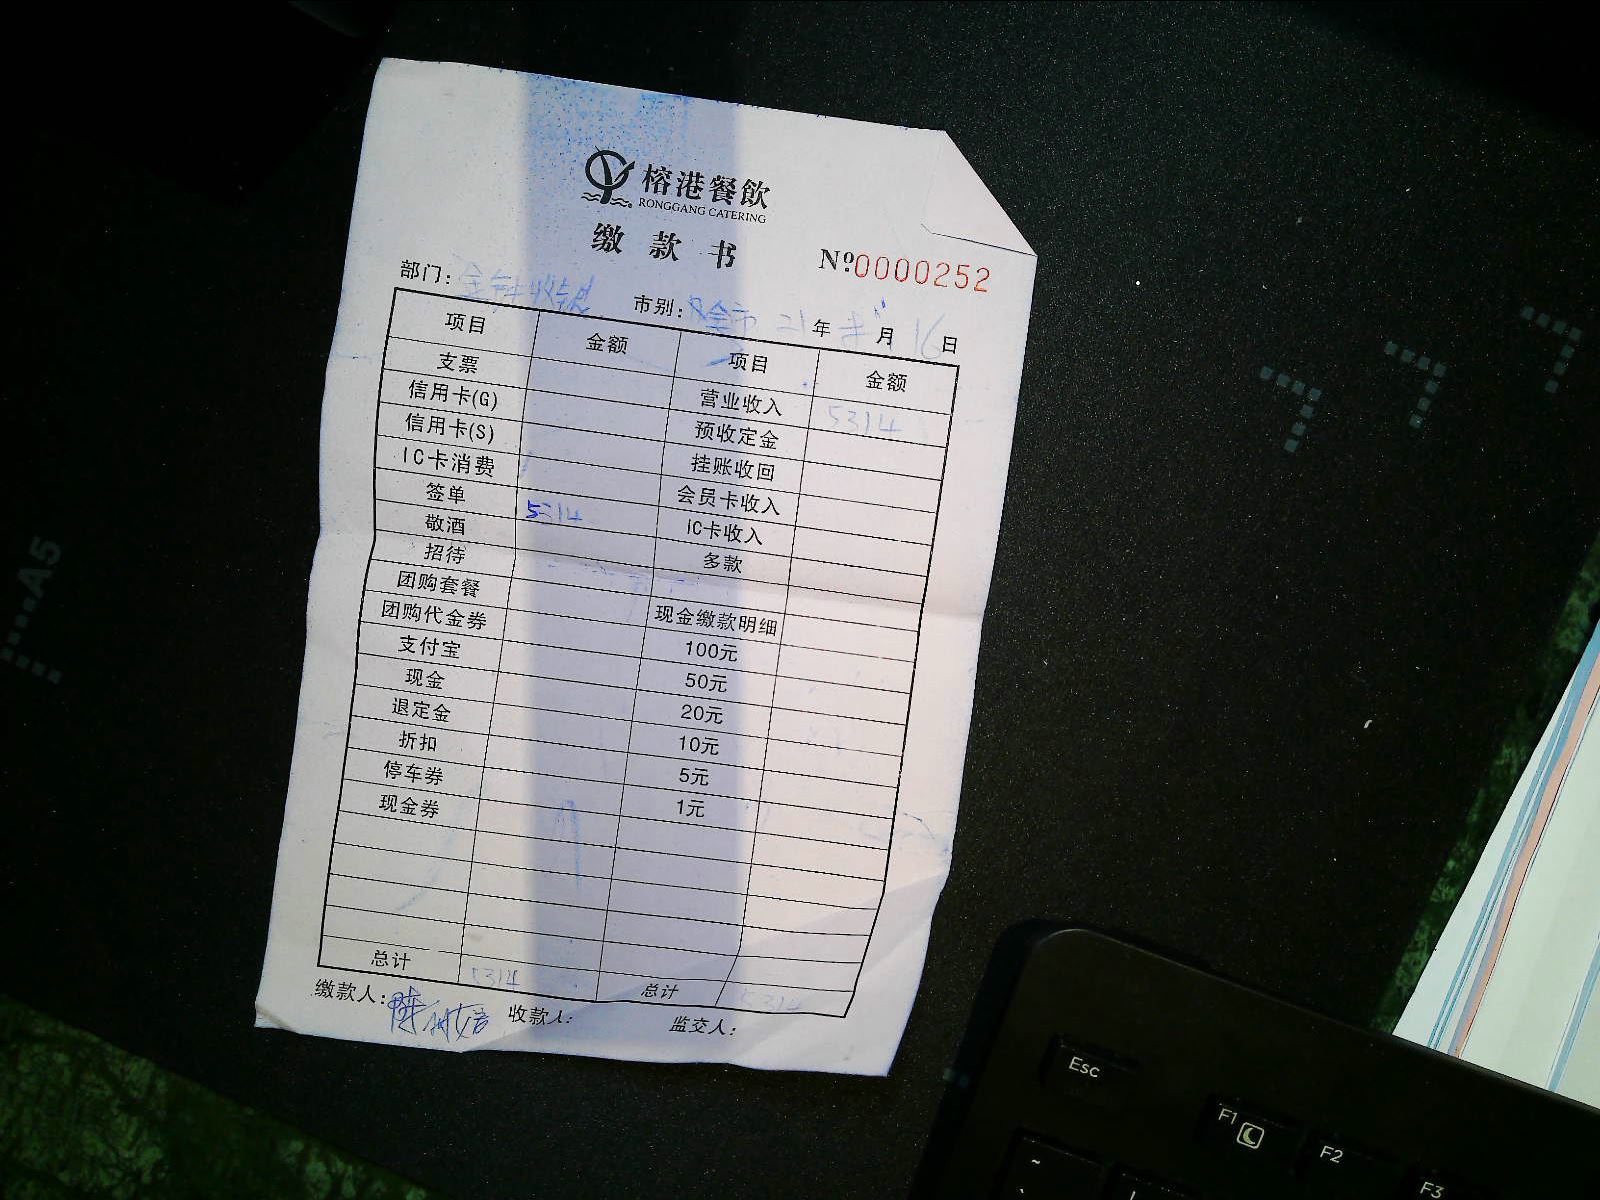 榕港餐飲
RONGGANG CATERING
缴款书
№0000252
部门： 市别： 全市 21年 月16日
项目 金额 项目 金额
支票 营业收入 5314
信用卡(G) 预收定金
信用卡(S) 挂账收回
IC卡消费 会员卡收入
签单 5314 IC卡收入
敬酒 多款
招待
团购套餐 现金缴款明细
团购代金券 100元
支付宝 50元
现金 20元
退定金 10元
折扣 5元
停车券 1元
现金券
总计 5314 总计 5314
缴款人： 收款人： 监交人：
A5
Esc
F1
F2
F3
~